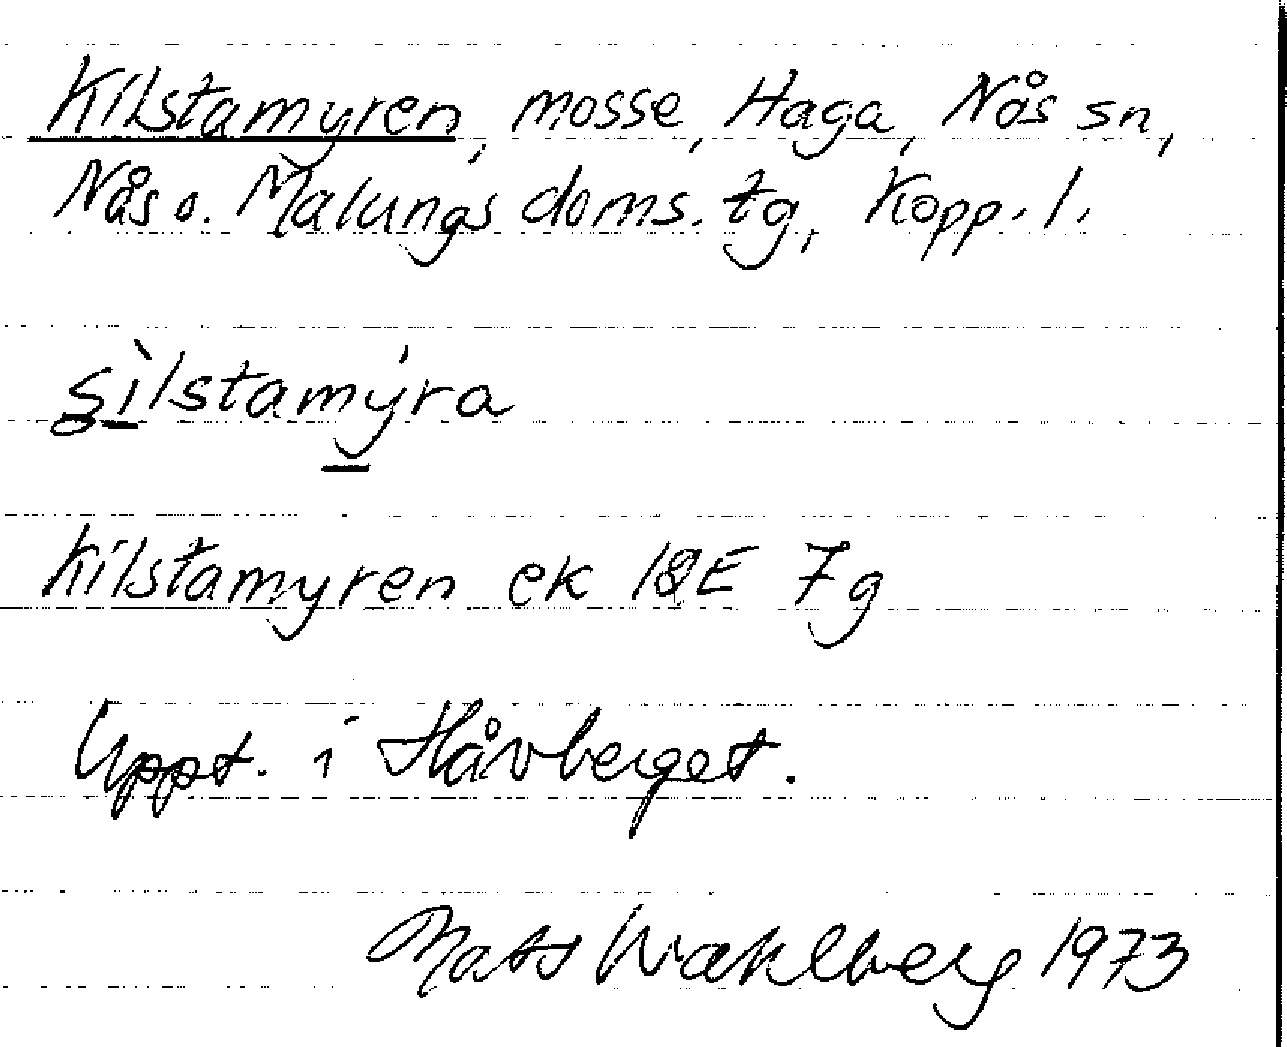 Kilstamyren, mosse, Haga, Nås sn,
Nås o. Malungs doms. tg, Kopp. l.
s̀ìlstamýra
Kilstamyren ek 12E 7g
Uppt. i Håvberget.
Mats Wahlberg 1973